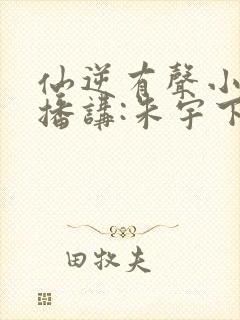 仙逆有聲小
播講:朱宇下
田牧夫